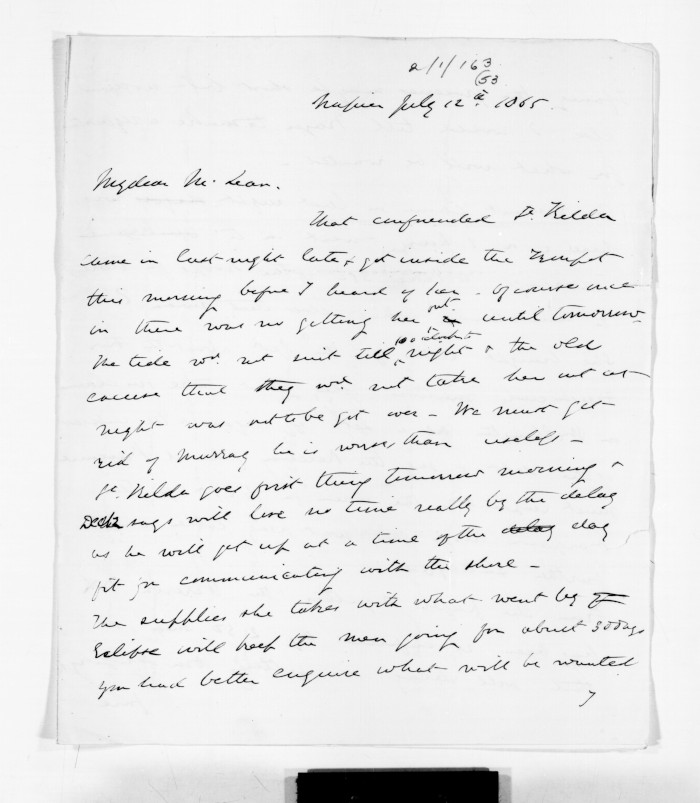 2/1/163
(53
Napier July 12th 1865.
My dear McLean.
That confounded St. Kilda
came in last night late & got inside the
this morning before I heard of her - Of course once
in there was no getting her out until tomorrow
the tide wd. not suit till 10 o'clock night & the old
excuse that they wd. not take her out at
night was not to be got over - We must get
rid of Murray he is worse than useless -
St. Kilda goes first thing tomorrow morning &
says will lose no time really by the delay
as he will get up at a time of the delay day
fit for communicating with the shore -
The supplies she takes with what went by
Eclipse will keep the men going for about 30 days
you had better enquire what will be wanted